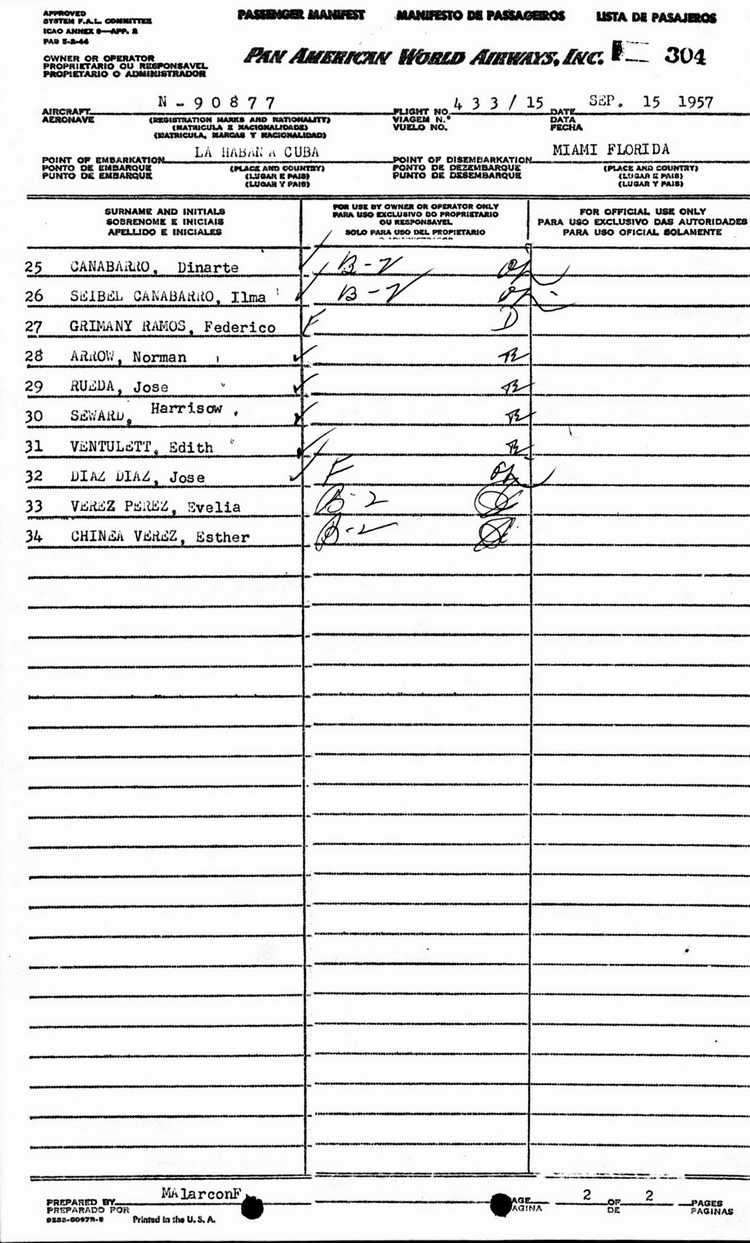 APPROVED
SYSTEM F.A.L. COMMITTEE
ICAO ANNEX 9—APP. 2
PAD 5-2-44
PASSENGER MANIFEST MANIFESTO DE PASSAGEIROS LISTA DE PASAJEROS
OWNER OR OPERATOR
PROPRIETARIO OU RESPONSAVEL
PROPIETARIO O ADMINISTRADOR
PAN AMERICAN WORLD AIRWAYS, INC. 304
AIRCRAFT N-90877 FLIGHT NO. 433/15 DATE SEP. 15 1957
AERONAVE (REGISTRATION MARKS AND NATIONALITY) VIAGEM N.º DATA
(MATRICULA E NACIONALIDADE) VUELO NO. FECHA
(MATRICULA, MARCAS Y NACIONALIDAD)
POINT OF EMBARKATION LA HABANA CUBA POINT OF DISEMBARKATION MIAMI FLORIDA
PONTO DE EMBARQUE (PLACE AND COUNTRY) PONTO DE DEZEMBARQUE (PLACE AND COUNTRY)
PUNTO DE EMBARQUE (LUGAR E PAIS) PUNTO DE DESEMBARQUE (LUGAR E PAIS)
(LUGAR Y PAIS) (LUGAR Y PAIS)
SURNAME AND INITIALS
SOBRENOME E INICIAIS
APELLIDO E INICIALES
FOR USE BY OWNER OR OPERATOR ONLY
PARA USO EXCLUSIVO DO PROPRIETARIO
OU RESPONSAVEL
SOLO PARA USO DEL PROPIETARIO
O ADMINISTRADOR
FOR OFFICIAL USE ONLY
PARA USO EXCLUSIVO DAS AUTORIDADES
PARA USO OFICIAL SOLAMENTE
25 CANABARRO, Dinarte B-2
26 SEIBEL CANABARRO, Ilma B-2
27 GRIMANY RAMOS, Federico F D
28 ARROW, Norman
29 RUEDA, Jose
30 SEWARD, Harrisow
31 VENTULETT, Edith
32 DIAZ DIAZ, Jose F
33 VEREZ PEREZ, Evelia B-2
34 CHINEA VEREZ, Esther B-2
PREPARED BY MAlarconF PAGE 2 OF 2 PAGES
PREPARADO POR PAGINA DE PAGINAS
Printed in the U. S. A.